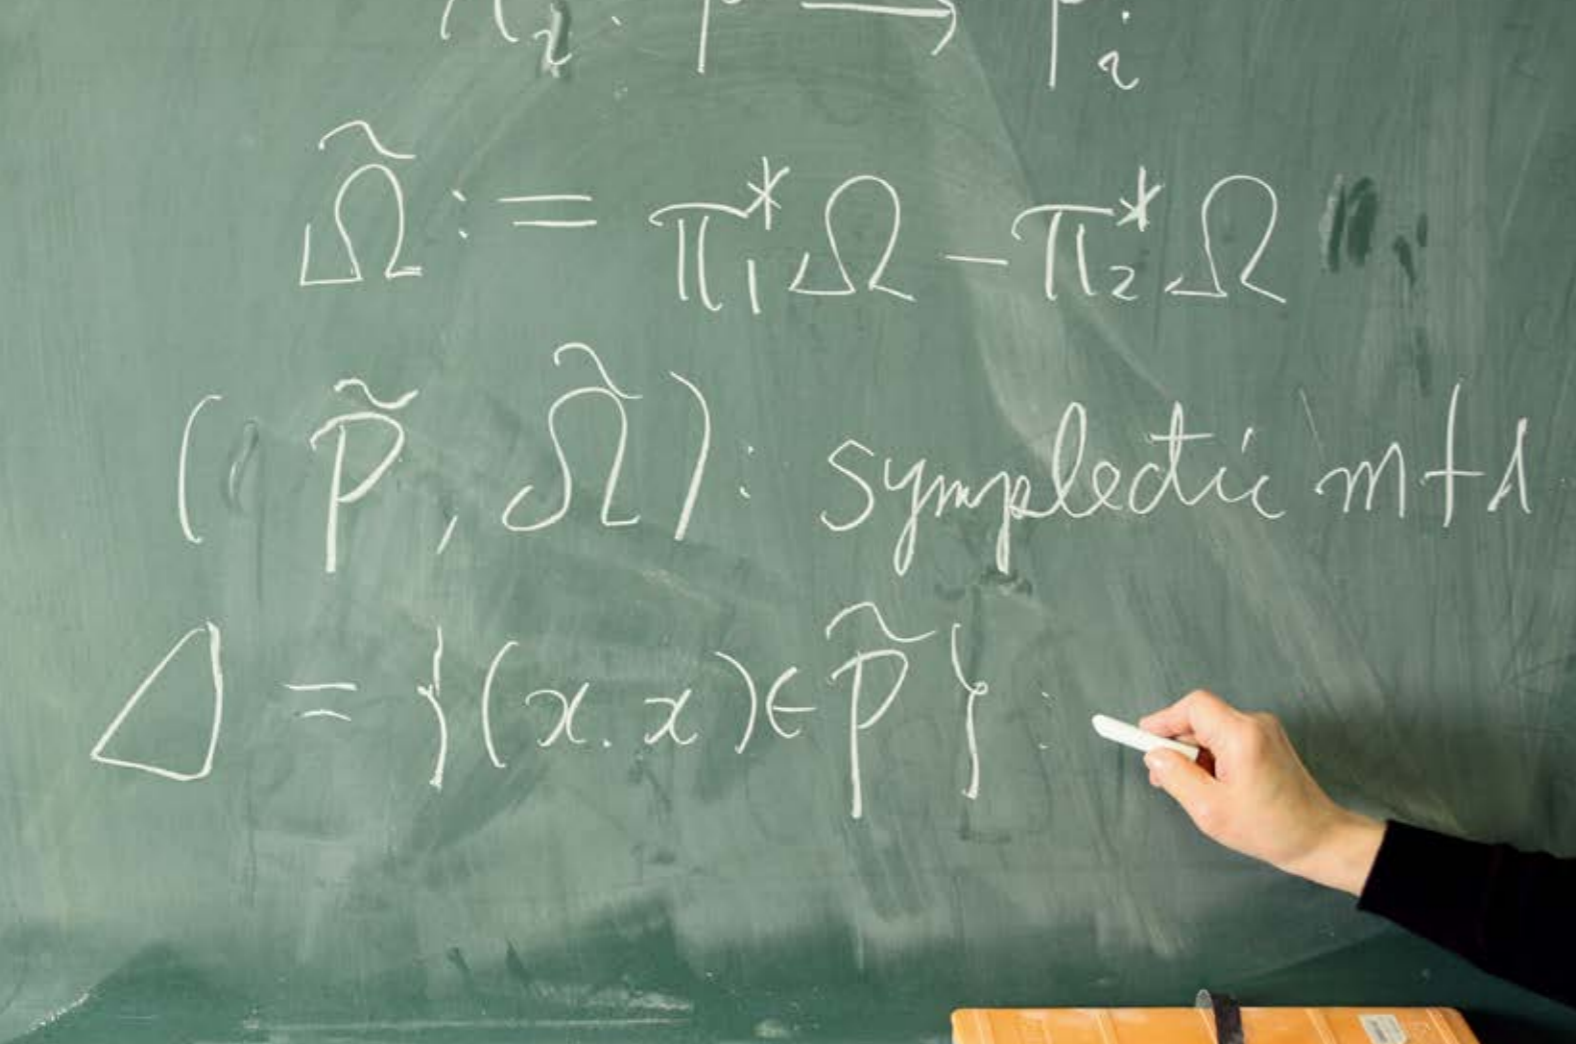 π_i: P̃ → P_i
Ω̃ := π₁*Ω − π₂*Ω
(P̃, Ω̃): symplectic mfd
Δ = {(x.x)∈P̃}: